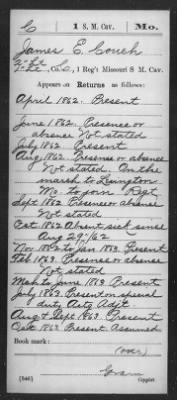 C 1 S. M. Cav. Mo.
James E. Couch
2" Lt, Co. C, 1 Reg't Missouri S M. Cav.
Appears on Returns as follows:
April 1862. Present
June 1862. Presence or
absence Not stated
July 1862 Present
Aug. 1862. Presense or absence
Not stated. On the
march to Lexington
Mo. to join Regt
Sept 1862 Presence or absence
Not stated
Oct. 1862 Absent, sick since
Aug 29"/62
Nov. 1862 to Jan 1863. Present
Feb 1863. Presence or absence
Not stated
Mch to June 1863 Present
July 1863. Present on special
duty Actg Adjt.
Aug & Sept 1863 Present
Oct 1863 Present Assumed
Book mark:
(over)
(546) Copyist.